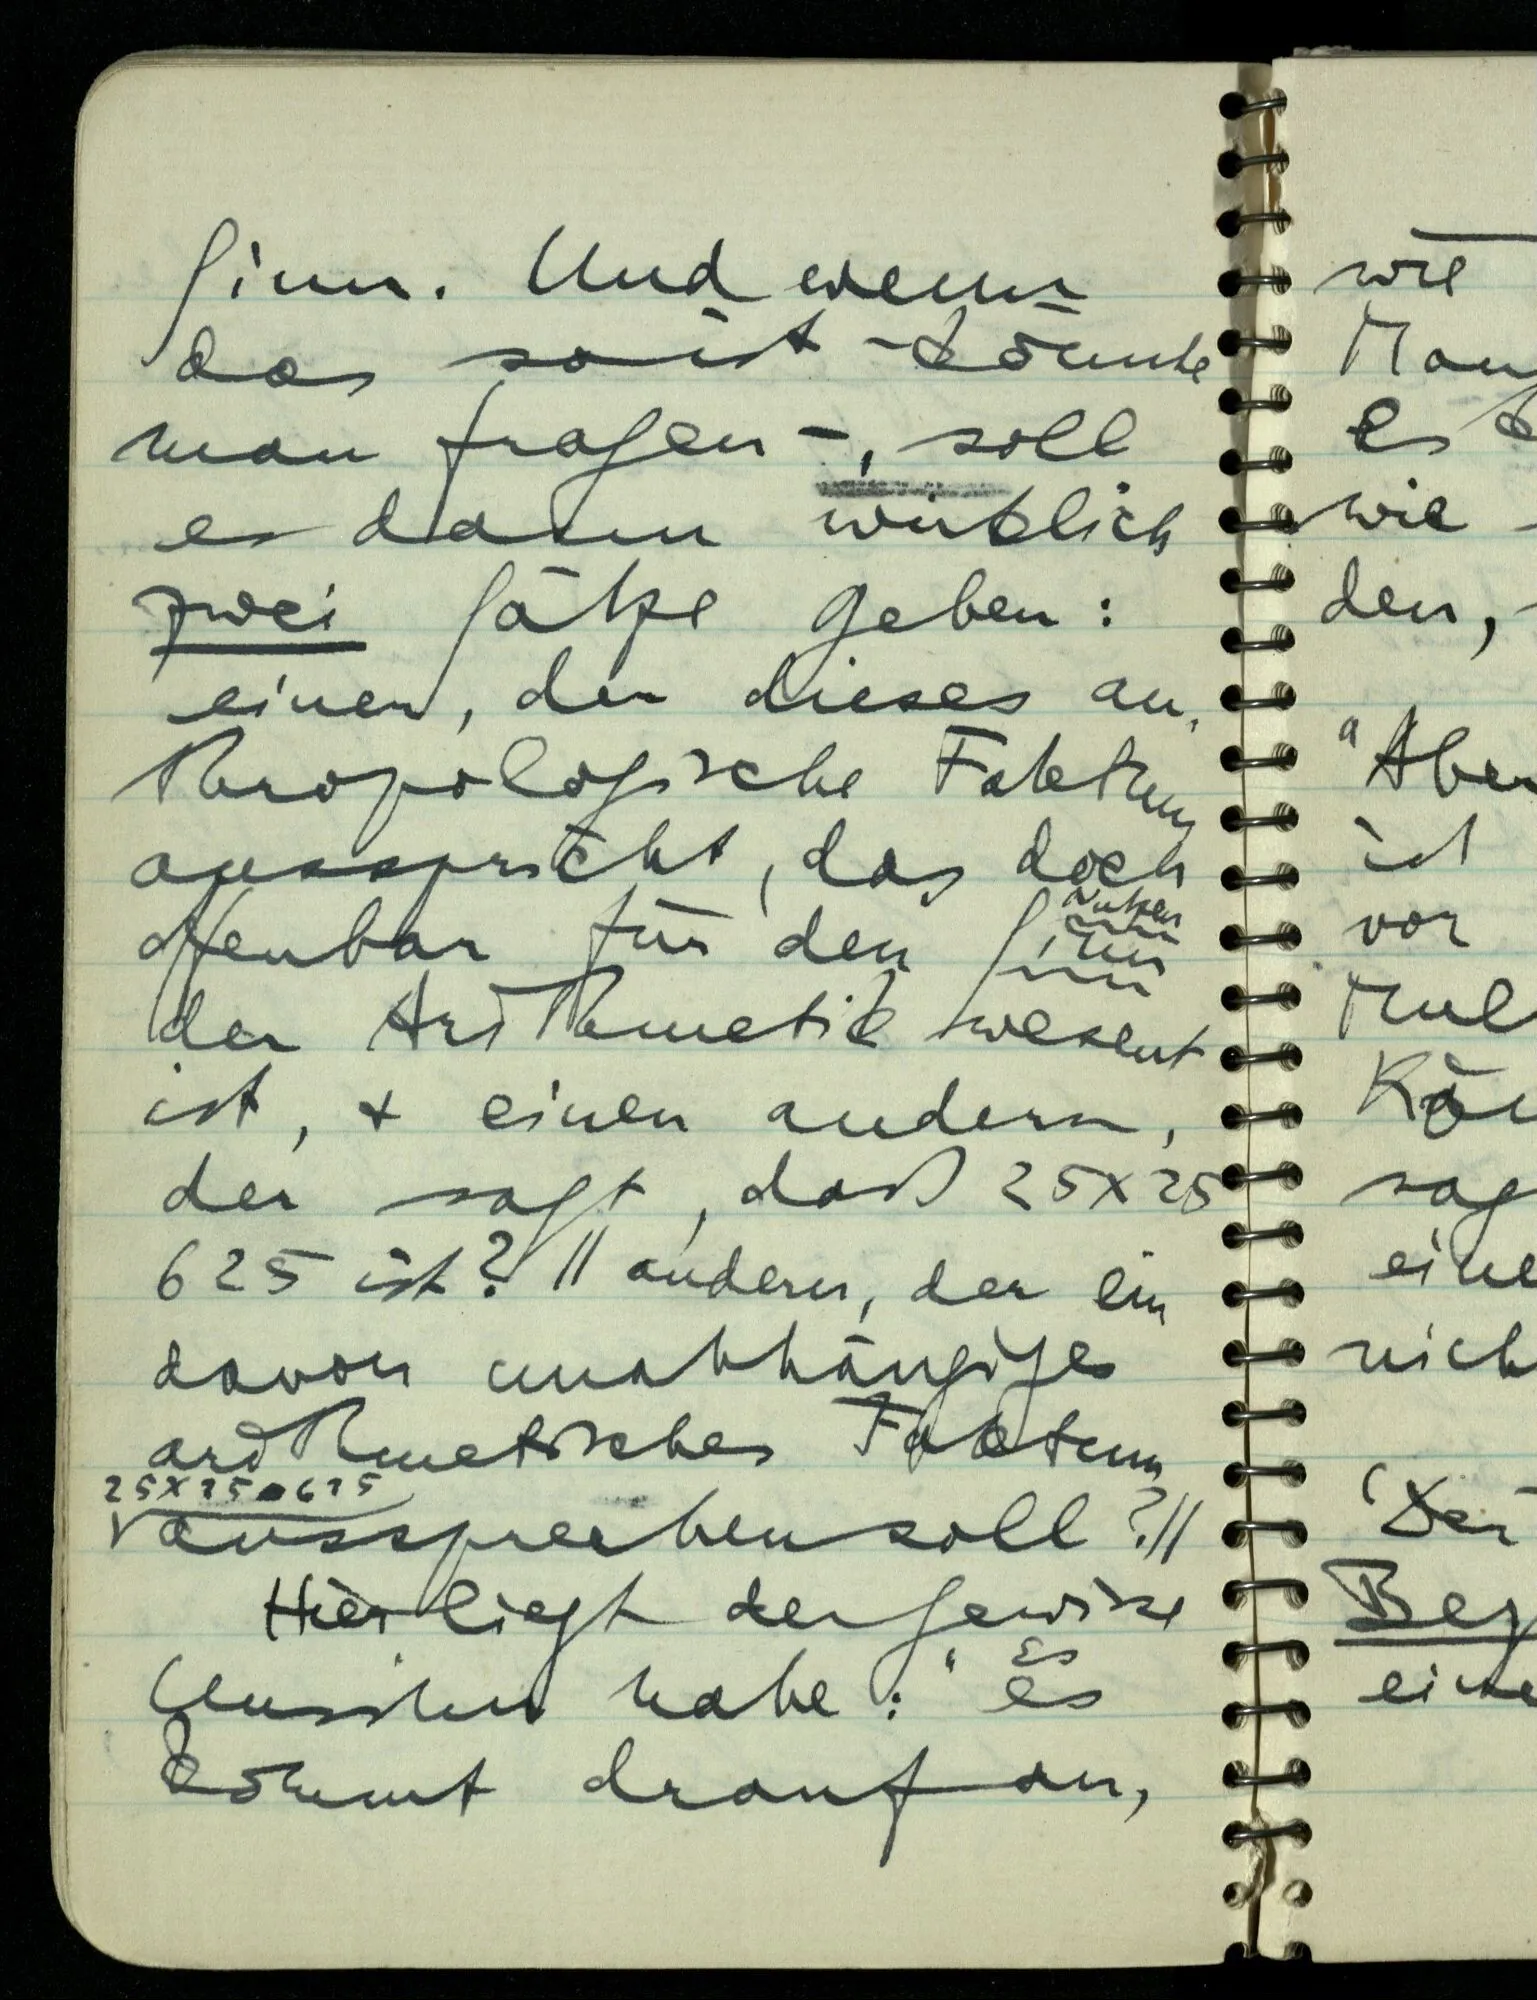 Sinn. Und wenn
das so ist – könnte
man fragen –, soll
es dann wirklich
zwei Sätze geben:
einen, der dieses an-
thropologische Faktum
ausspricht, das doch
Nutzen
offenbar für den Sinn
der Arithmetik wesent
ist, & einen andern,
der sagt, daß 25x25
625 ist? // andern, der ein
davon unabhängiges
arithmetisches Faktum
25x25=625
aussprechen soll?//
Hier liegt der gewisse
Unsinn nahe: "Es
es
kommt drauf an,
wie
es
wie
den,
"Aber
ist
vor
Mul
Kön
sag
eine
nich
'Der
Beg
eine